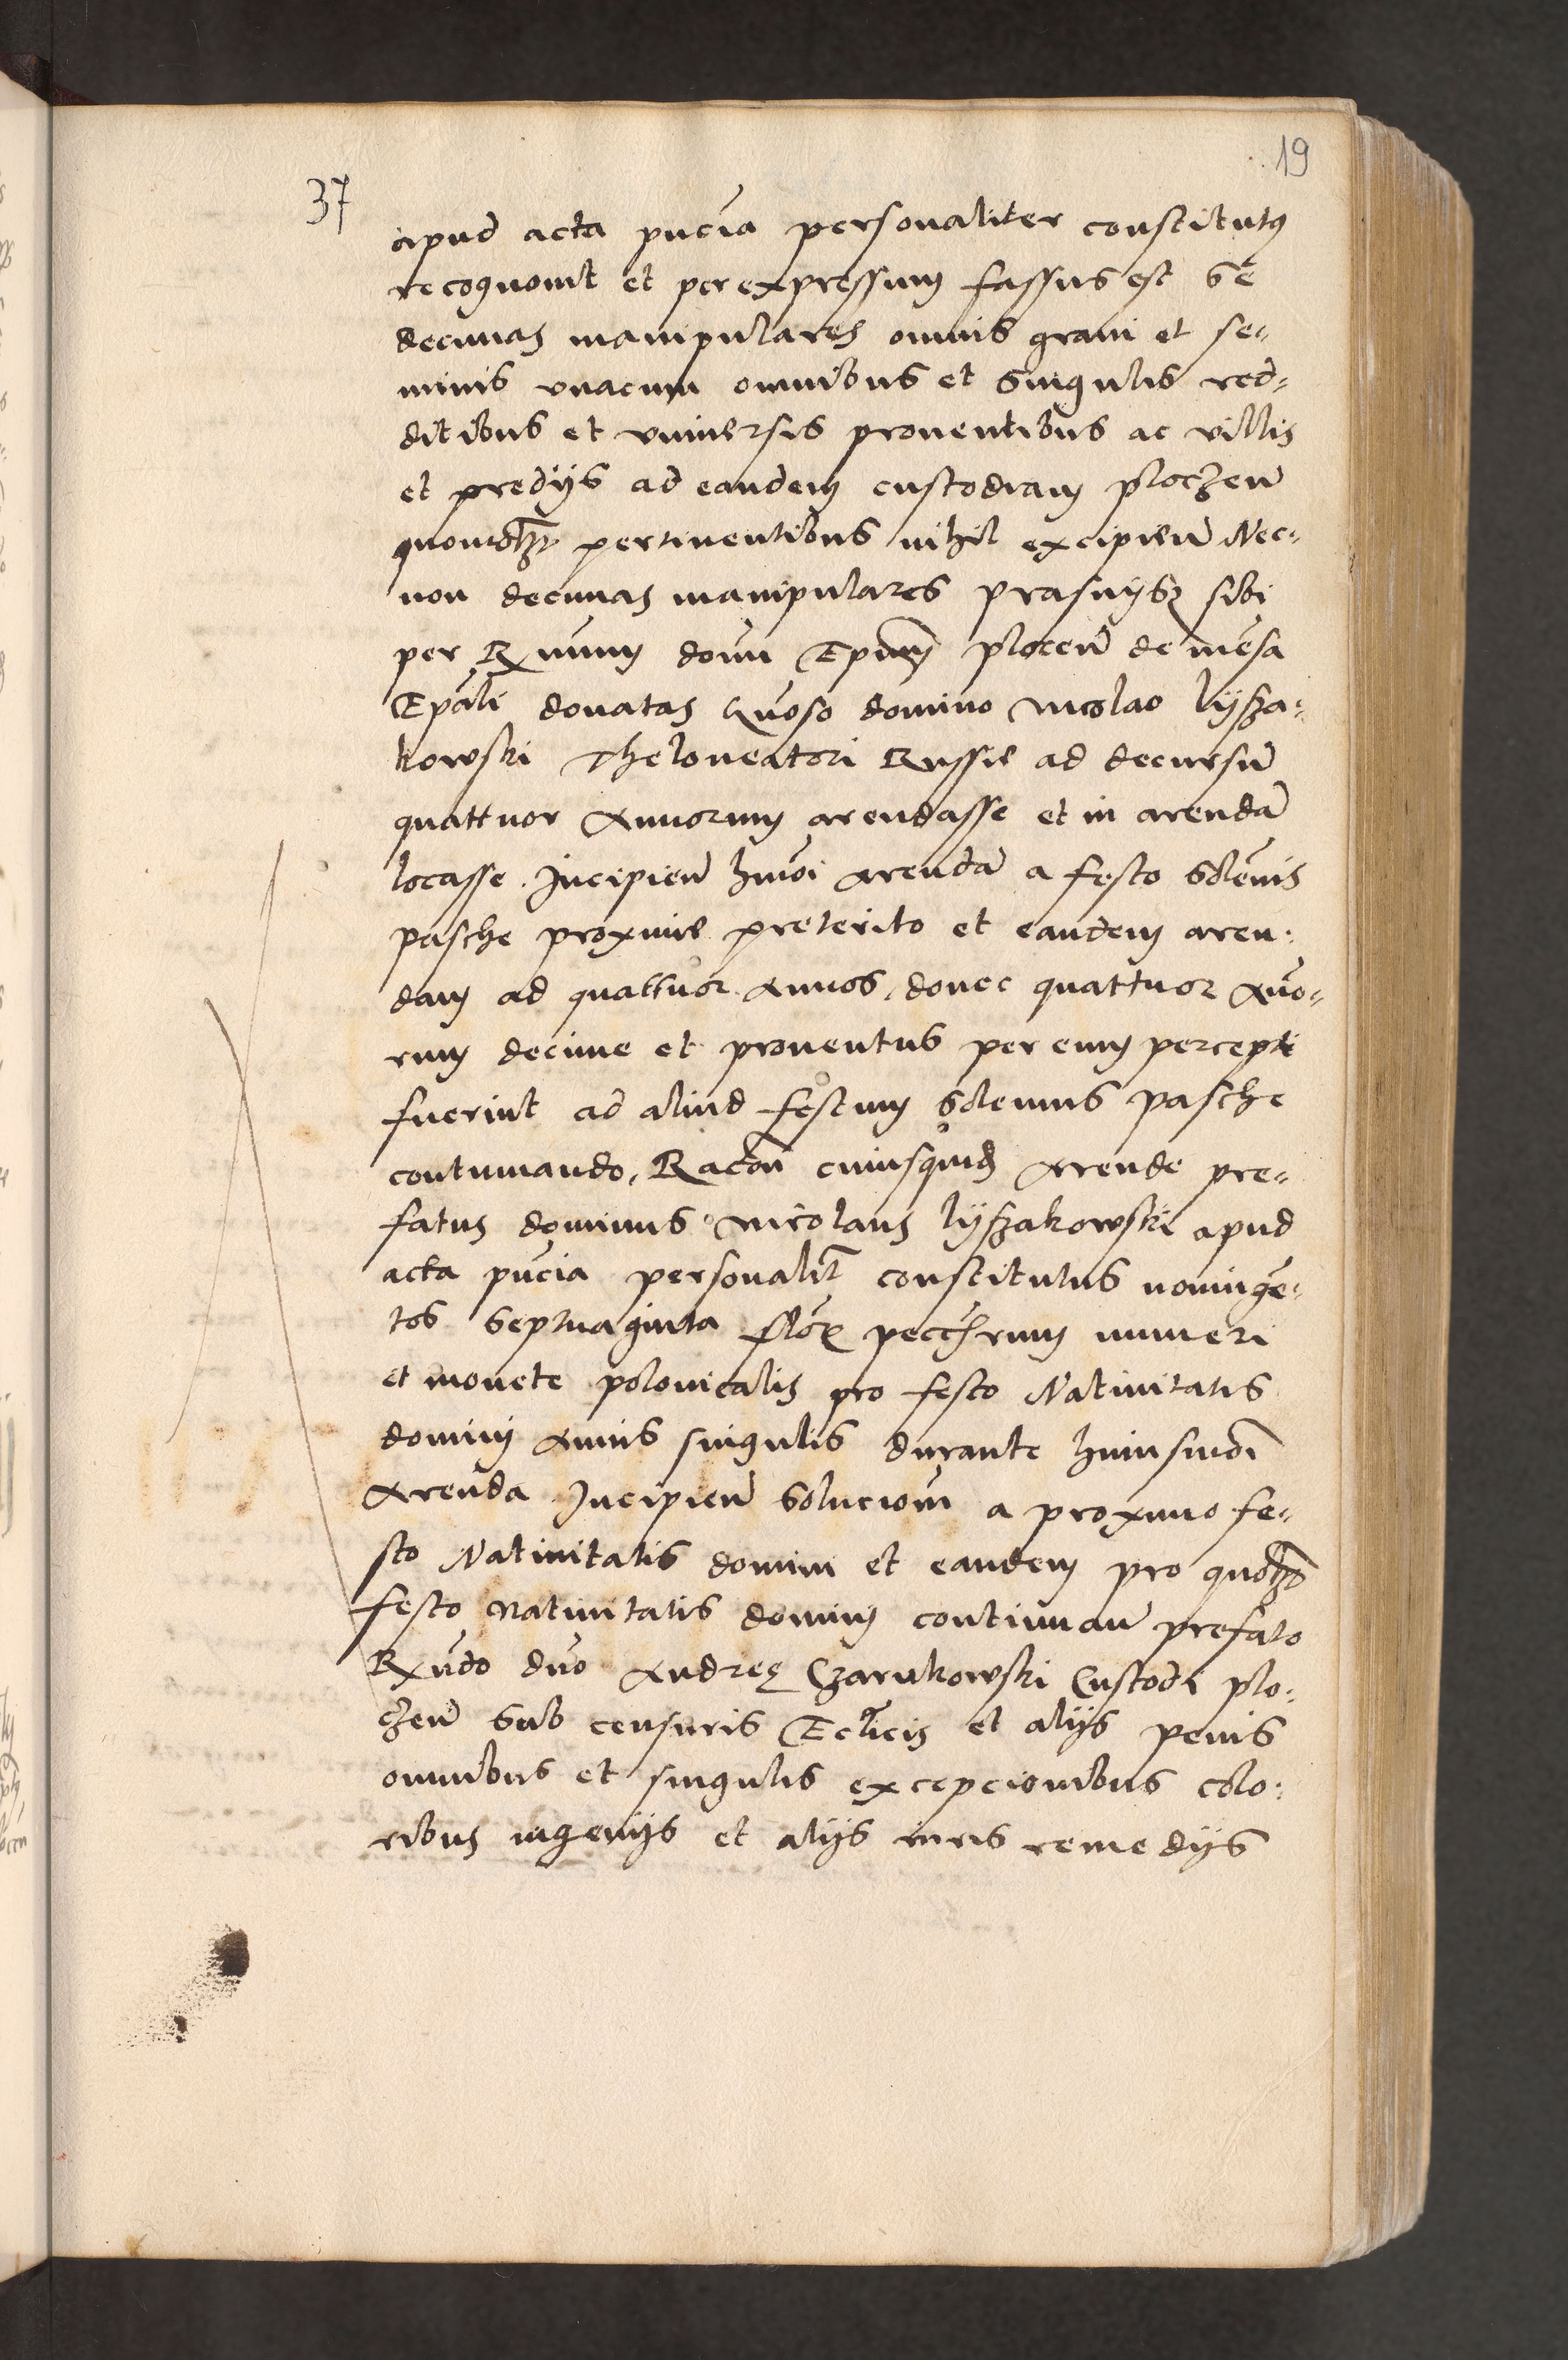 19
37
apud acta pn̄cia personaliter constitutꝰ
recognovit et per expressum fassus est sē
decimas manipulares omnis grani et se-
minis vnacum omnibus et singulis red-
ditibus et vniuersis prouentibus ac villis
et predijs ad eandem custodiam ploczen̄
pertinentibus nihil excipien̄ Nec-
non decimas manipulares prasnijsz sibi
per R num domn Epum plocen̄ de mēsa
Epāli donatas Gn̄oso domino nicolao lijsza-
kowski Theloneatori Russie ad decursū
quattuor Annorum arendasse et in arendā
locasse. Incipien̄ hmōi Arendā a festo solēnis
pasche proxime preterito et eandem aren-
dam ad quattuor Annos, donec quattuor An̄o-
rum decime et prouentus per eum percepti
fuerint ad aliud festum solennis pasche
continuando, Racōn cuiusquidē Arende pre-
fatus dominus nicolaus lijszakowski apud
acta pn̄cia personalit̄ constitutus nōingē-
tos septuaginta flōr pecchrum numeri
et monete polonicalis pro festo Natiuitatis
dominj Annis singulis durante huiusmōi
Arenda Incipien̄ soluciom̄ a proximo fe-
sto Natiuitatis domini et eandem pro quolꝫ
festo natiuitatis dominj continuan̄ prefato
Rn̄do dn̄o Andreę Czarnkowski Custodi plo-
czen̄ sub censuris Ecclīcis et alijs penis
omnibus et singulis excepcionibus colo-
ribus ingenijs et alijs iuris remedijs